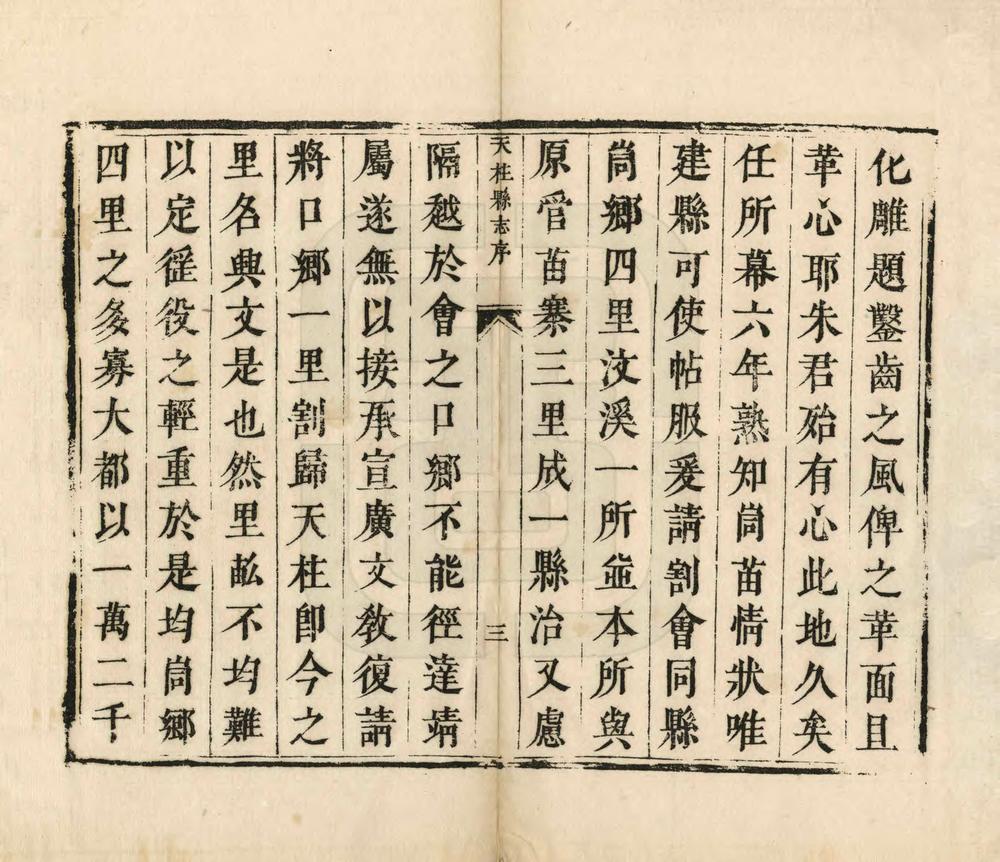 化雕題鑿齒之風俾之革面且
革心耶朱君殆有心此地久矣
任所幕六年熟知峝苗情狀唯
建縣可使帖服爰請割會同縣
峝鄉四里汶溪一所並本所與
原管苗寨三里成一縣治又慮
天柱縣志序
三
隔越於會之口鄉不能徑達靖
屬遂無以接承宣廣文教復請
將口鄉一里割歸天柱即今之
里名興文是也然里畝不均難
以定徭役之輕重於是均峝鄉
四里之多寡大都以一萬二千